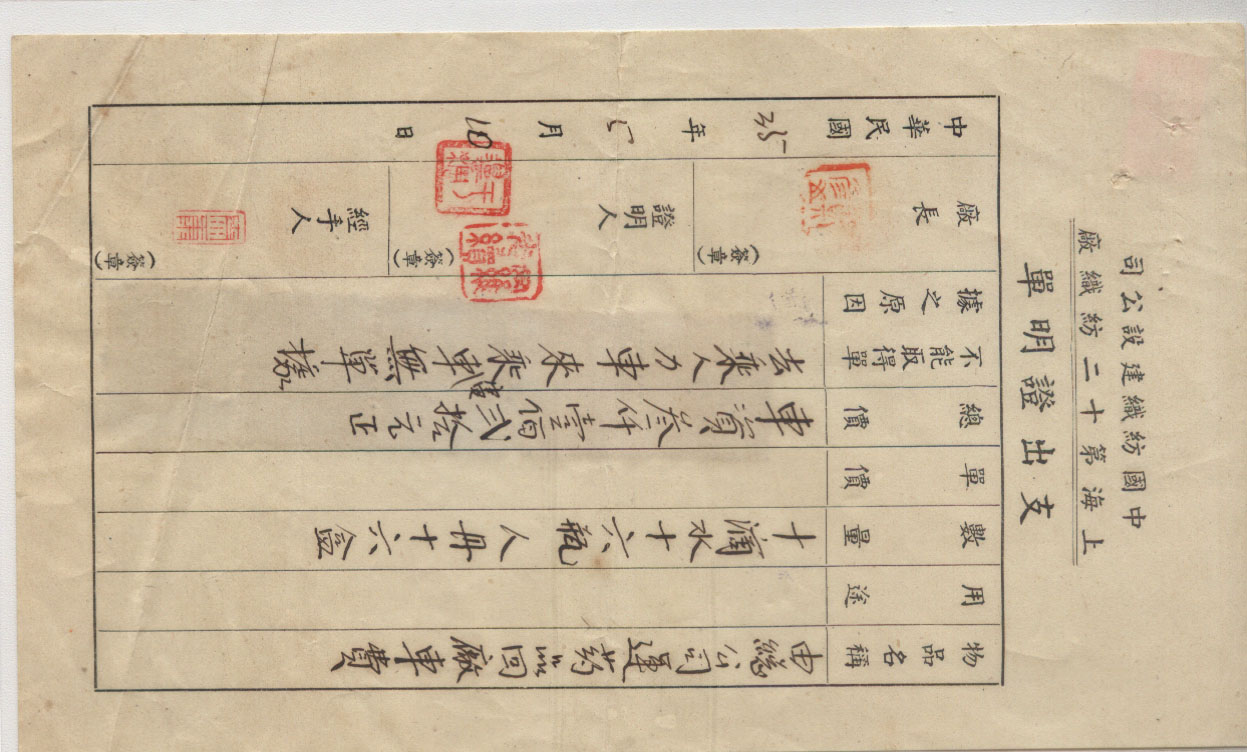 中國紡織建設公司
上海第十二紡織廠
支出證明單
物品名稱 由總公司運葯品回廠車費
用途
數量 十滴水十六瓶 人丹十六盒
單價
總價 車資叁仟壹佰貳拾元正
不能取得單據之原因 去乘人力車來乘電車無單據
廠長 (簽章)
證明人 (簽章)
經手人 (簽章)
中華民國35年5月18日